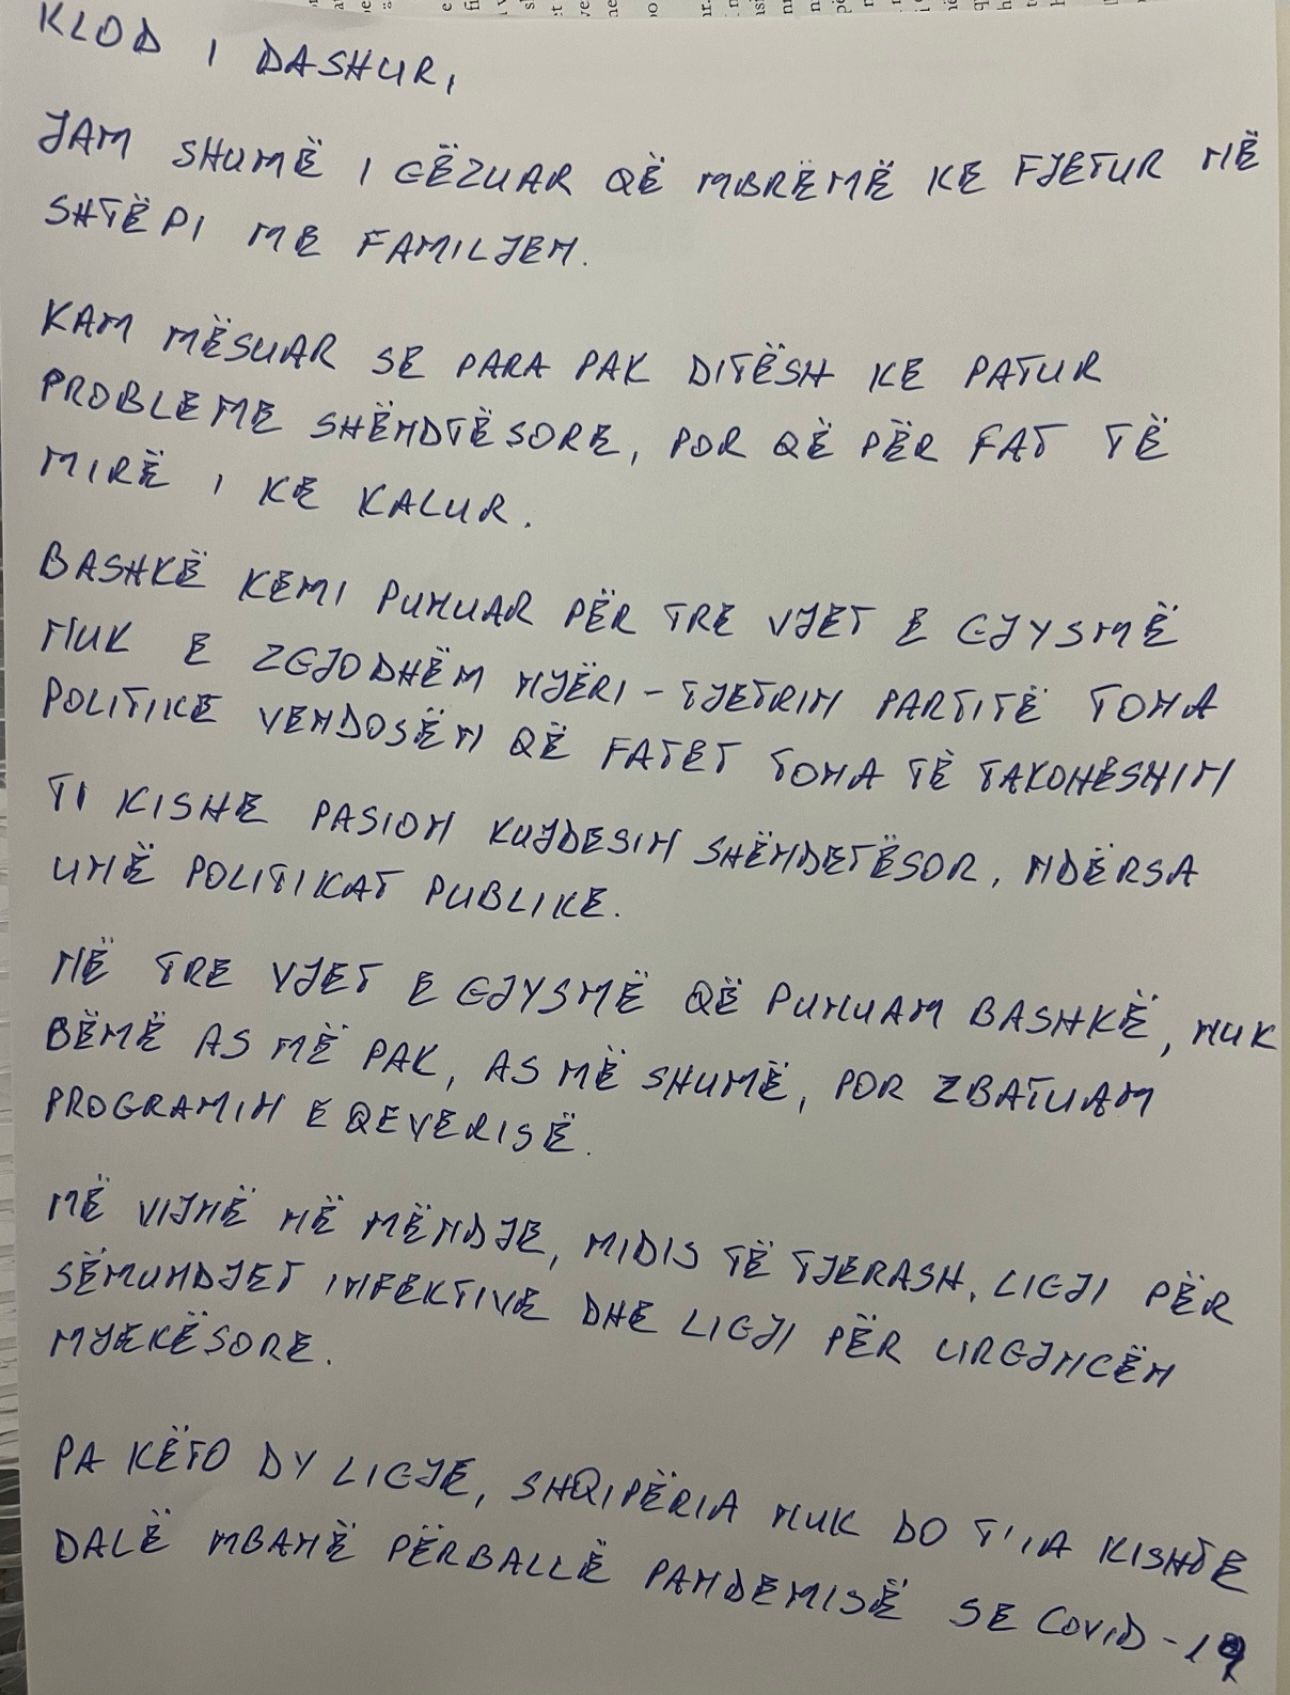 KLOD I DASHUR,
JAM SHUMË I GËZUAR QË MBRËMË KE FJETUR NË
SHTËPI ME FAMILJEN.
KAM MËSUAR SE PARA PAK DITËSH KE PATUR
PROBLEME SHËNDTËSORE, POR QË PËR FAT TË
MIRË I KE KALUR.
BASHKË KEMI PUNUAR PËR TRE VJET E GJYSMË
NUK E ZGJODHËM NJËRI-TJETRIN PARTITË TONA
POLITIKE VENDOSËN QË FATET TONA TË TAKONESHIN
TI KISHE PASION KUJDESIN SHËNDETËSOR, NDËRSA
UNË POLITIKAT PUBLIKE.
NË TRE VJET E GJYSMË QË PUNUAM BASHKË, NUK
BËMË AS MË PAK, AS MË SHUMË, POR ZBATUAM
PROGRAMIN E QEVERISË.
MË VIJNË NË MËNDJE, MIDIS TË TJERASH, LIGJI PËR
SËMUNDJET INFEKTIVE DHE LIGJI PËR URGJNCËN
MJEKËSORE.
PA KËTO DY LIGJE, SHQIPËRIA NUK DO T'IA KISHTE
DALË MBANË PËRBALLË PANDEMISË SE COVID-19